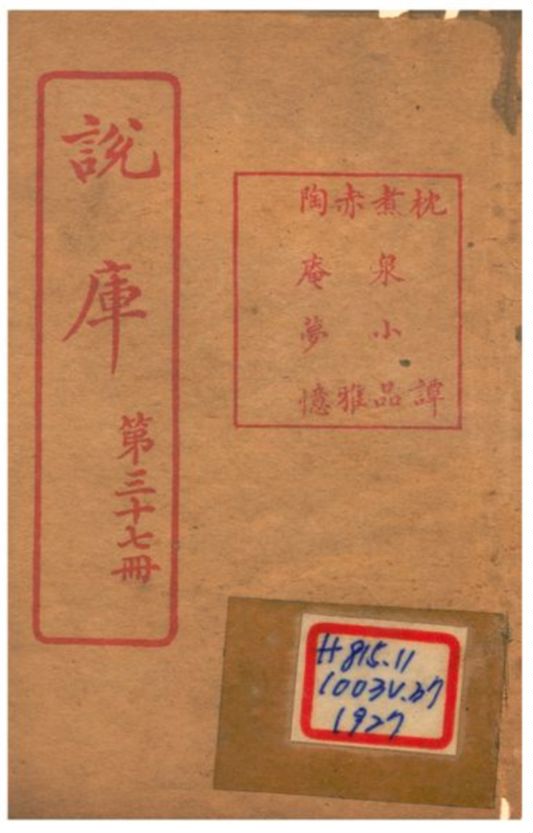 枕譚
煮泉小品
赤雅
陶庵夢憶
說庫
第三十七冊
H815.11
1003V.37
1927